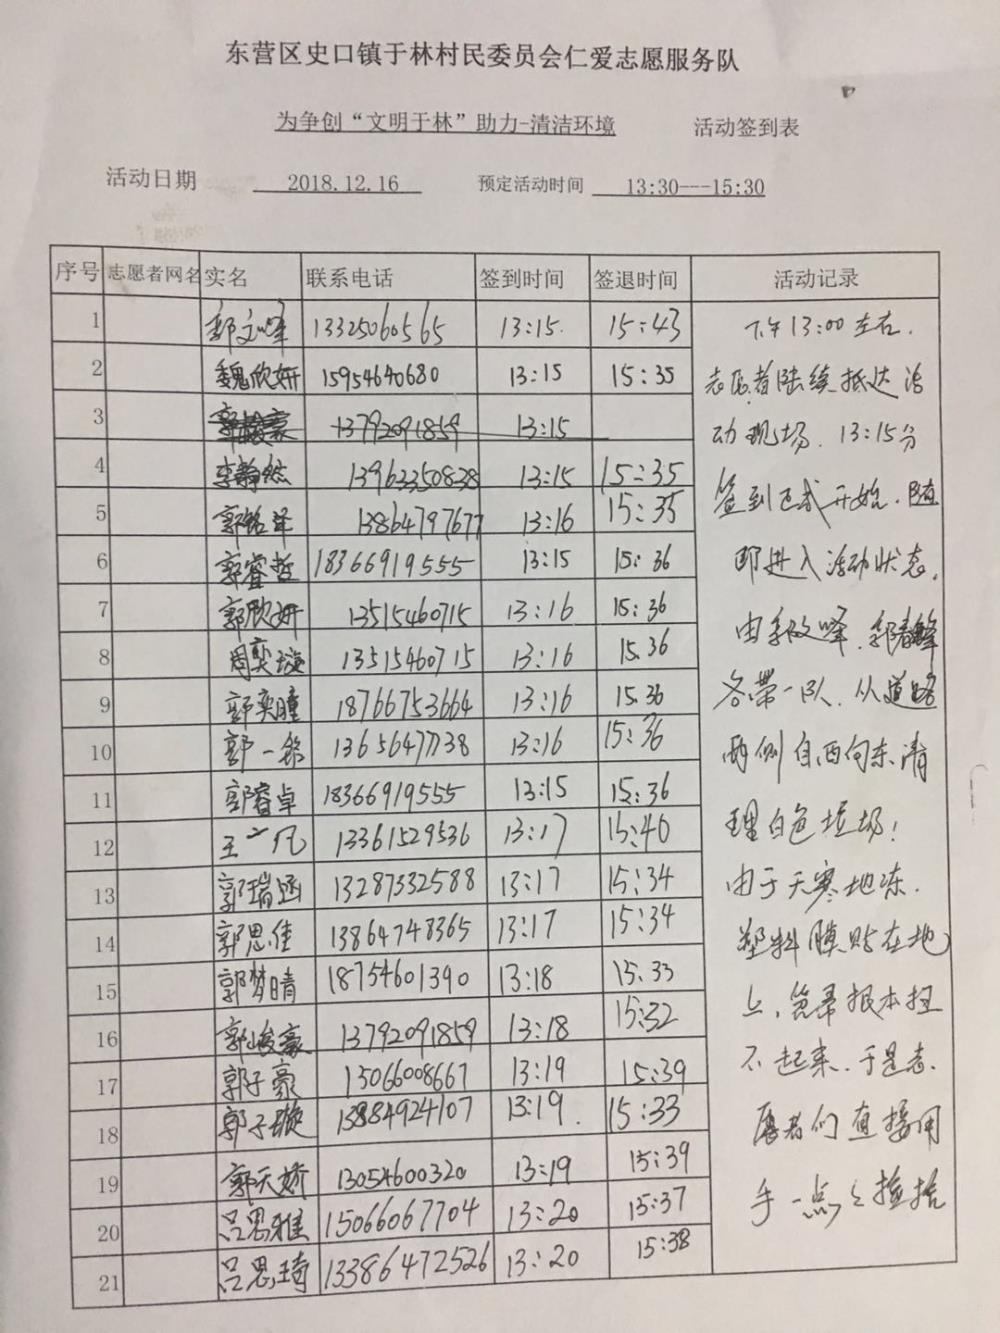 东营区史口镇于林村民委员会仁爱志愿服务队
为争创“文明于林”助力-清洁环境 活动签到表
活动日期 2018.12.16 预定活动时间 13:30---15:30
序号 志愿者网名 实名 联系电话 签到时间 签退时间 活动记录
1 郭文峰 13325060565 13:15. 15:43
2 魏欣妍 15954640680 13:15 15:35
3 郭峻豪 13792091859 13:15
4 李静然 13963350838 13:15 15:35
5 郭铭泽 13864797677 13:16 15:35
6 郭睿哲 18366919555 13:15 15:36
7 郭欣妍 13515460715 13:16 15:36
8 周奕璇 13515460715 13:16 15.36
9 郭奕瞳 18766753664 13:16 15.36
10 郭一 13:16 15:36
11 郭睿卓 18366919555 13:15 15:36
12 王一凡 13361529536 13:17 15:40
13 郭瑞涵 13287332588 13:17 15:34
14 郭思佳 13864748365 13:17 15:34
15 郭梦晴 18754601390 13:18 15:33
16 郭峻豪 13792091859 13:18 15:32
17 郭子豪 15066008667 13:19 15:39
18 郭子璇 13884924107 13:19. 15:33
19 郭天娇 13054600320 13:19 15:39
20 吕思雅 15066067704 13:20 15:37
21 吕思琦 13386472526 13:20 15:38
下午13:00左右.
志愿者陆续抵达活
动现场. 13:15分
签到正式开始. 随
即进入活动状态,
由郭文峰. 郭春峰
各带一队. 从道路
两侧自西向东清
理白色垃圾!
由于天寒地冻.
塑料膜贴在地
上, 笤帚根本扫
不起来. 于是志
愿者们直接用
手一点点捡拾